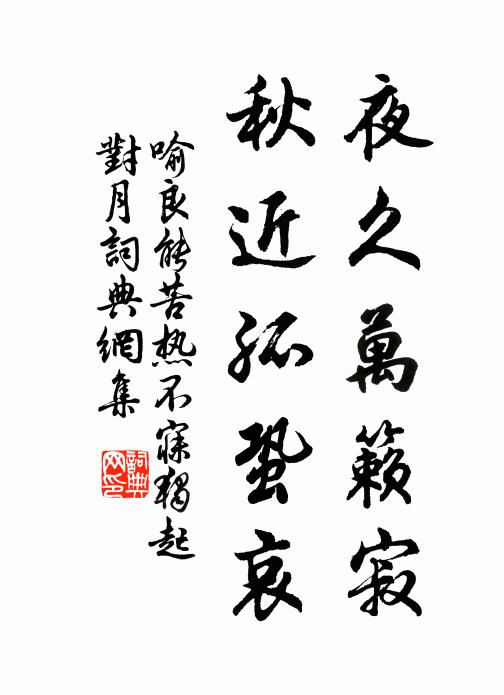 夜久萬籟寂
秋近孤蛩哀
喻良能苦热不寐獨起
對月詞典網集
詞典網印